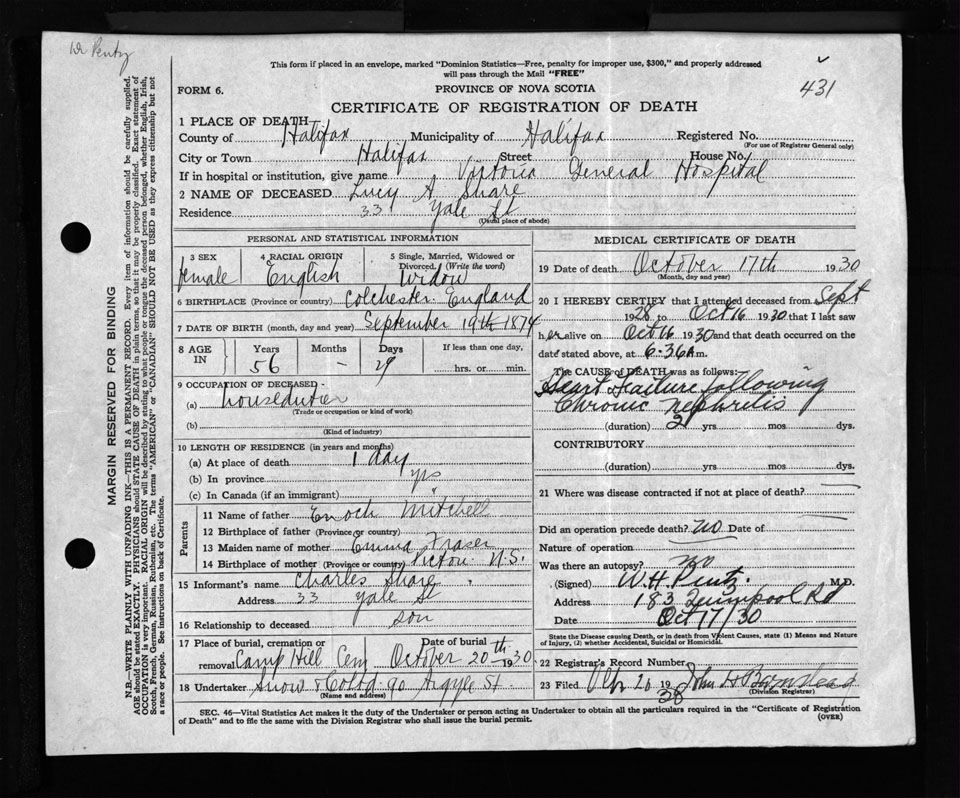 Dr Pentz
This form if placed in an envelope, marked "Dominion Statistics—Free, penalty for improper use, $300," and properly addressed
will pass through the Mail "FREE"
431
FORM 6. PROVINCE OF NOVA SCOTIA
CERTIFICATE OF REGISTRATION OF DEATH
1 PLACE OF DEATH
County of Halifax Municipality of Halifax Registered No.
(For use of Registrar General only)
City or Town Halifax Street House No.
If in hospital or institution, give name Victoria General Hospital
2 NAME OF DECEASED Lucy A Share
Residence 33 Yale St
(Usual place of abode)
PERSONAL AND STATISTICAL INFORMATION
3 SEX 4 RACIAL ORIGIN 5 Single, Married, Widowed or
Divorced. (Write the word)
female English Widow
6 BIRTHPLACE (Province or country) Colchester England
7 DATE OF BIRTH (month, day and year) September 19th 1874
8 AGE IN Years Months Days If less than one day,
56 – 29 hrs. or min.
9 OCCUPATION OF DECEASED
(a) houseduties
(Trade or occupation or kind of work)
(b)
(Kind of industry)
10 LENGTH OF RESIDENCE (in years and months)
(a) At place of death 1 day
(b) In province
(c) In Canada (if an immigrant)
Parents
11 Name of father Enoch Mitchell
12 Birthplace of father (Province or country)
13 Maiden name of mother Emma Fraser
14 Birthplace of mother (Province or country) Pictou N.S.
15 Informant's name Charles Share
Address 33 Yale St
16 Relationship to deceased son
17 Place of burial, cremation or Date of burial
removal Camp Hill Cem October 20th 1930
18 Undertaker Snow & Co Ltd 90 Argyle St
(Name and address)
MEDICAL CERTIFICATE OF DEATH
19 Date of death October 17th 1930
(Month, day and year)
20 I HEREBY CERTIFY that I attended deceased from Sept
1928 to Oct 16 1930 that I last saw
her alive on Oct 16 1930 and that death occurred on the
date stated above, at 6:36 A m.
The CAUSE OF DEATH was as follows:
Heart Failure following
Chronic nephritis
(duration) 2 yrs. mos dys.
CONTRIBUTORY
(duration) yrs. mos. dys.
21 Where was disease contracted if not at place of death?
Did an operation precede death? no Date of
Nature of operation
Was there an autopsy? no
(Signed) W.H. Pentz. M.D.
Address 183 Quinpool Rd
Date Oct 17/30
State the Disease causing Death, or in death from Violent Causes, state (1) Means and Nature
of Injury, (2) whether Accidental, Suicidal or Homicidal.
22 Registrar's Record Number
23 Filed 20 19 John H Barnstead
(Division Registrar)
SEC. 46—Vital Statistics Act makes it the duty of the Undertaker or person acting as Undertaker to obtain all the particulars required in the "Certificate of Registration
of Death" and to file the same with the Division Registrar who shall issue the burial permit.
(OVER)
MARGIN RESERVED FOR BINDING
N.B.—WRITE PLAINLY WITH UNFADING INK—THIS IS A PERMANENT RECORD. Every item of information should be carefully supplied.
AGE should be stated EXACTLY. PHYSICIANS should STATE CAUSE OF DEATH in plain terms, so that it may be properly classified. Exact statement of
OCCUPATION is very important. RACIAL ORIGIN will be described by stating to what people or tongue the deceased person belonged, whether English, Irish,
Scotch, French, German, Russian, Ruthenian, etc. The terms "AMERICAN" or "CANADIAN" SHOULD NOT BE USED as they express citizenship but not
a race or people. See instructions on back of Certificate.